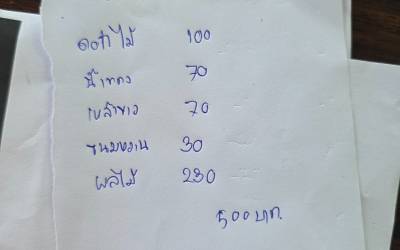 ดอกไม้ 100
น้ำแดง 70
เหล้าขาว 70
ขนมหวาน 30
ผลไม้ 230
500 บาท.